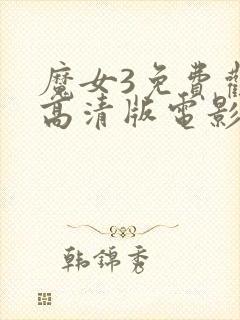 魔女3免費觀
高清版電影
韩錦秀